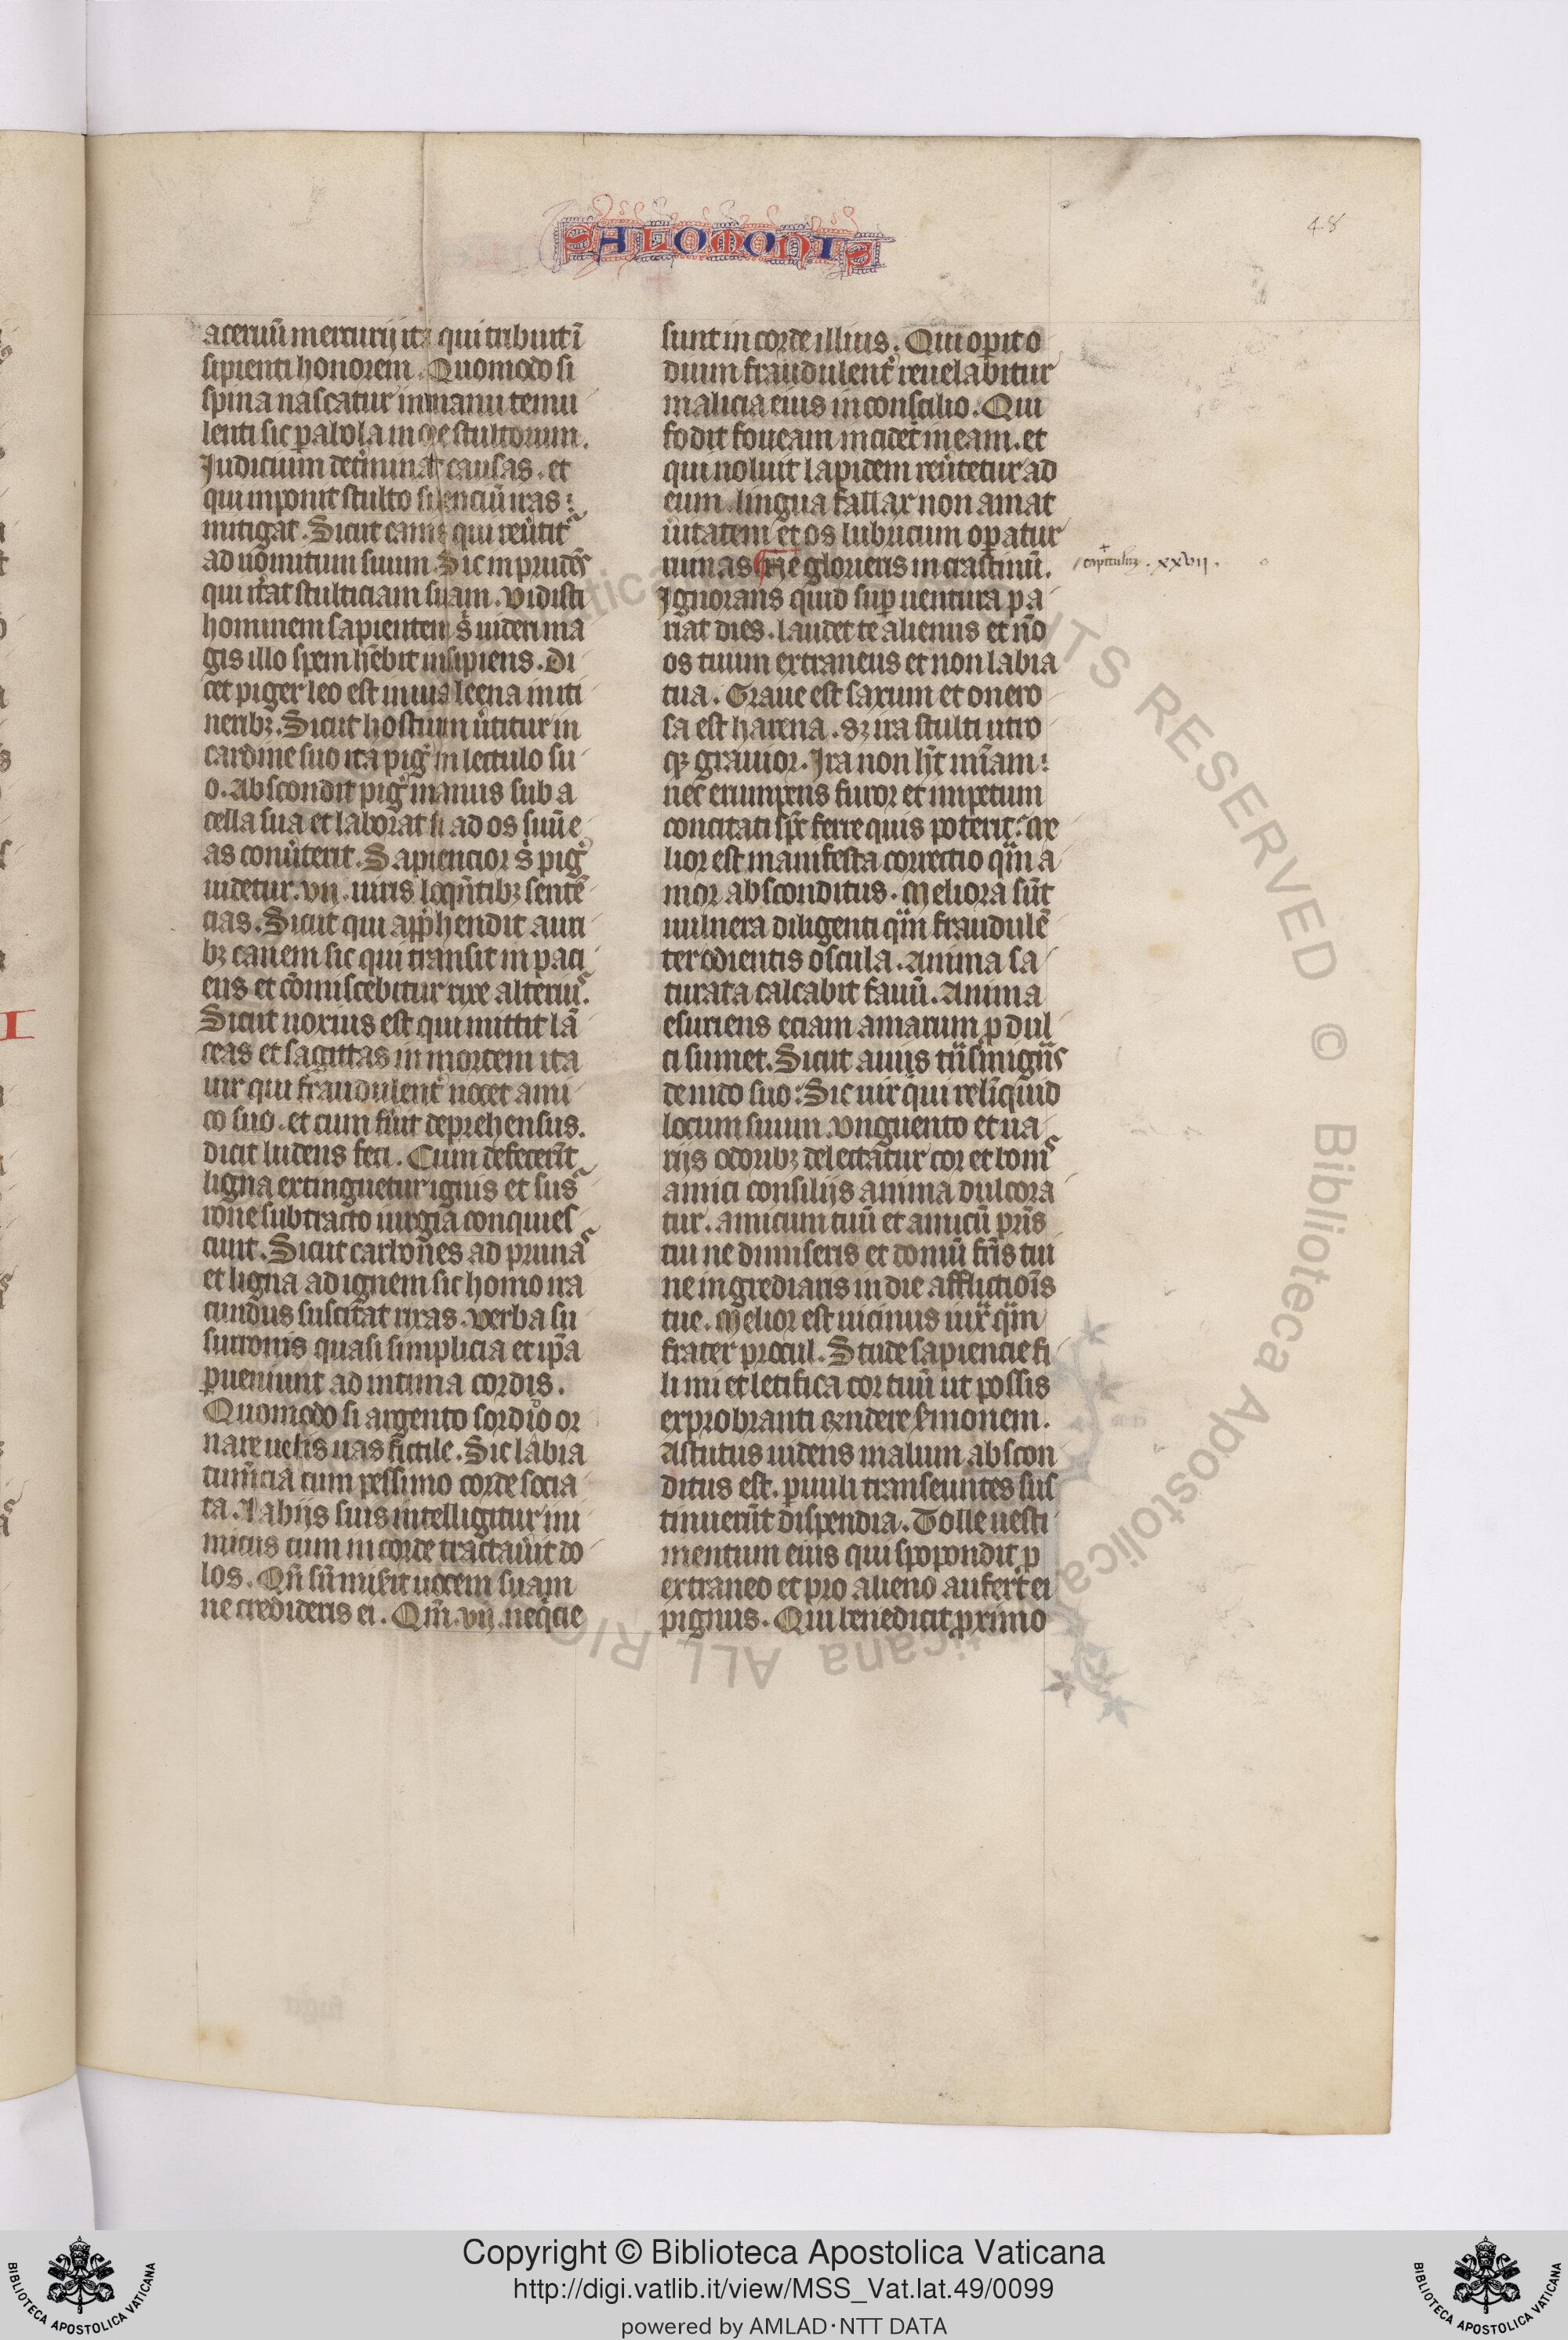 SALOMONIS
48
aceruū mercurij ita qui tribuit ī
sipienti honorem. Quomodo si
spina nascatur in manu temu
lenti sic ꝑabola in ore stultorum.
Judicium det͛minat causas. et
qui inponit stulto silenciū iras
mitigat. Sicut canis qui reu͛tit᷑
ad uomitum suum. Sic inprudēs
qui it͛at stulticiam suam. vidisti
hominem sapientem s̉ uideri ma
gis illo spem hēbit insipiens. Di
cet piger leo est in uia leena in iti
neribꝫ. Sicut hostium u͛titur in
cardine suo ita pig͛ in lectulo su
o. Abscondit pig͛ manus sub a
cella sua et laborat si ad os suū e
as conu͛terit. Sapiencior s̉ pig͛
uidetur. vij. uiris loqn̄tibꝫ sentē
cias. Sicut qui apph̓endit auri
bꝫ canem sic qui transit in paci
ens et cōmiscebitur rixe alterius.
Sicut noxius est qui mittit lā
ceas et sagittas in mortem ita
uir qui fraudulent͛ nocet ami
co suo. et cum fu͛it deprehensus.
dicit ludens feci. Cum defecerīt
ligna extinguetur ignis et sus᷑
rone subtracto iurgia conquies
cunt. Sicut carbones ad prunas
et ligna ad ignem sic homo ira
cundus suscitat rixas. verba su
surronis quasi simplicia et ip̄a
ꝑueniunt ad intima cordis.
Quomodo si argento sordido or
nare uelis uas fictile. Sic labia
tumēcia cum pessimo corde socia
ta. Labijs suis intelligitur ini
micus cum in corde tractau͛it do
los. Qn̄ sūmiserit uocem suam
ne credideris ei. Qm̄. vij. neq̇cie
sunt in corde illius. Qui oꝑit o
dium fraudulent͛ reuelabitur
malicia eius in conscilio. Qui
fodit foueam incidet in eam. et
qui uoluit lapidem reu͛tetur ad
eum. lingua fallax non amat
u͛itatem et os lubricum oꝑatur
ruinas Ne glorieris in crastinū.
capitulum. xxvii.
Ignorans quid suꝑ uentura pa
riat dies. laudet te alienus et nō
os tuum extraneus et non labia
tua. Graue est saxum et onero
sa est harena. sꝫ ira stulti utro
qꝫ grauior. Ira non ht̄ mīam:
nec erumpens furor et impetum
concitati sp̄c ferre quis poterit. Me
lior est manifesta correctio qm̄ a
mor absconditus. Meliora sūt
uulnera diligenti qm̄ fraudulē
ter odientis oscula. Anima sa
turata calcabit fauū. Anima
esuriens eciam amarum ꝓ dul
ci sumet. Sicut auis tn̄smign̄s
de nido suo: Sic uir qui reliquid
locum suum. vnguento et ua
rijs odoribꝫ delectatur cor et bonis
amici consilijs anima dulcora
tur. amicum tuū et amicū pr̄is
tui ne dimiseris et domū fr̄is tui
ne ingrediaris in die afflictiōis
tue. Melior est uicinus iuxͣ qm̄
frater procul. Stude sapiencie fi
li mi et letifica cor tuū ut possis
exprobranti rn̄dere s̉monem.
Astutus uidens malum abscon
ditus est. ꝑuuli transeuntes sus
tinuerūt dispendia. Tolle uesti
mentum eius qui spopondit ꝓ
extraneo et pro alieno aufert͛ ei
pignus. Qui benedicit ꝓximo
Copyright © Biblioteca Apostolica Vaticana
http://digi.vatlib.it/view/MSS_Vat.lat.49/0099
powered by AMLAD·NTT DATA
BIBLIOTECA APOSTOLICA VATICANA
BIBLIOTECA APOSTOLICA VATICANA